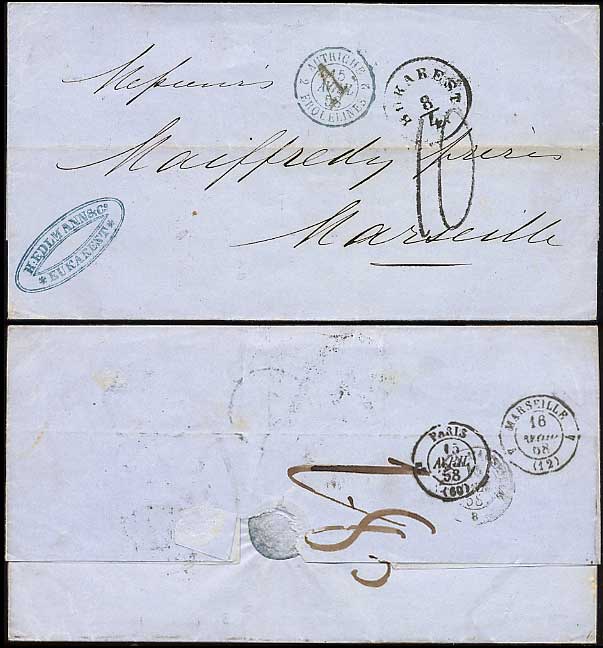 Messieurs
2 AUTRICHE 2
15
AVRIL
58
FROUELINES
BUKAREST
8/4
10
Maiffredy frères
Marseille
H. EDLMANN & Co
* BUKAREST *
PARIS
15
AVRIL
58
(60)
MARSEILLE
16
AVRIL
58
(12)
58
8